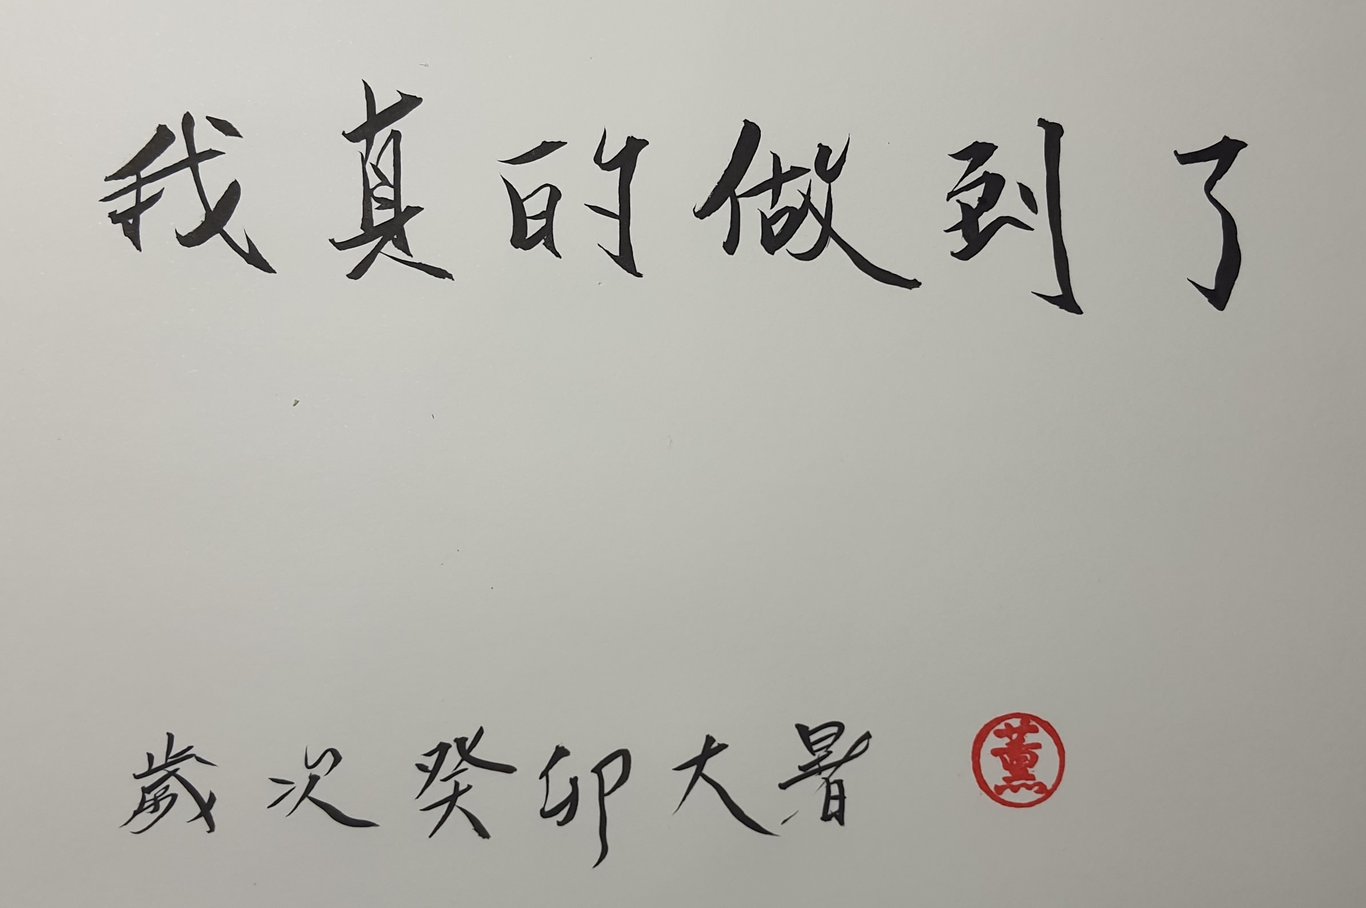 我真的做到了
歲次癸卯大暑 薫